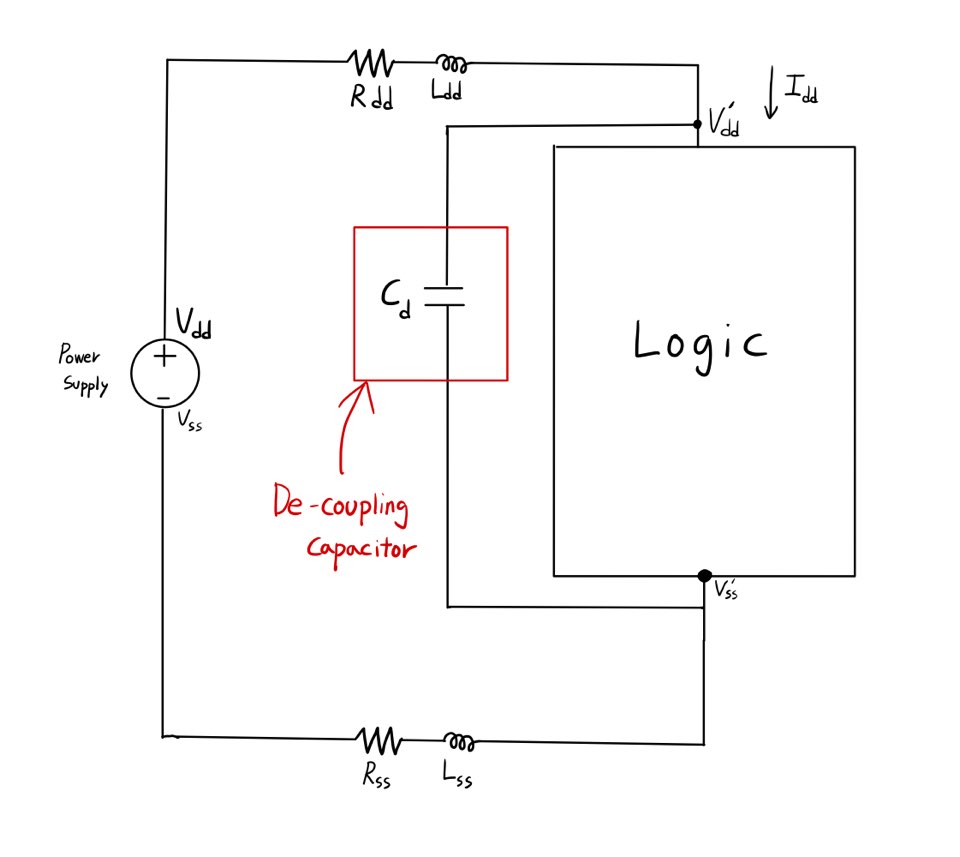 Rdd
Ldd
Idd
Vdd'
Cd
Logic
Vdd
Power
Supply
+
-
Vss
De-coupling
Capacitor
Vss'
Rss
Lss